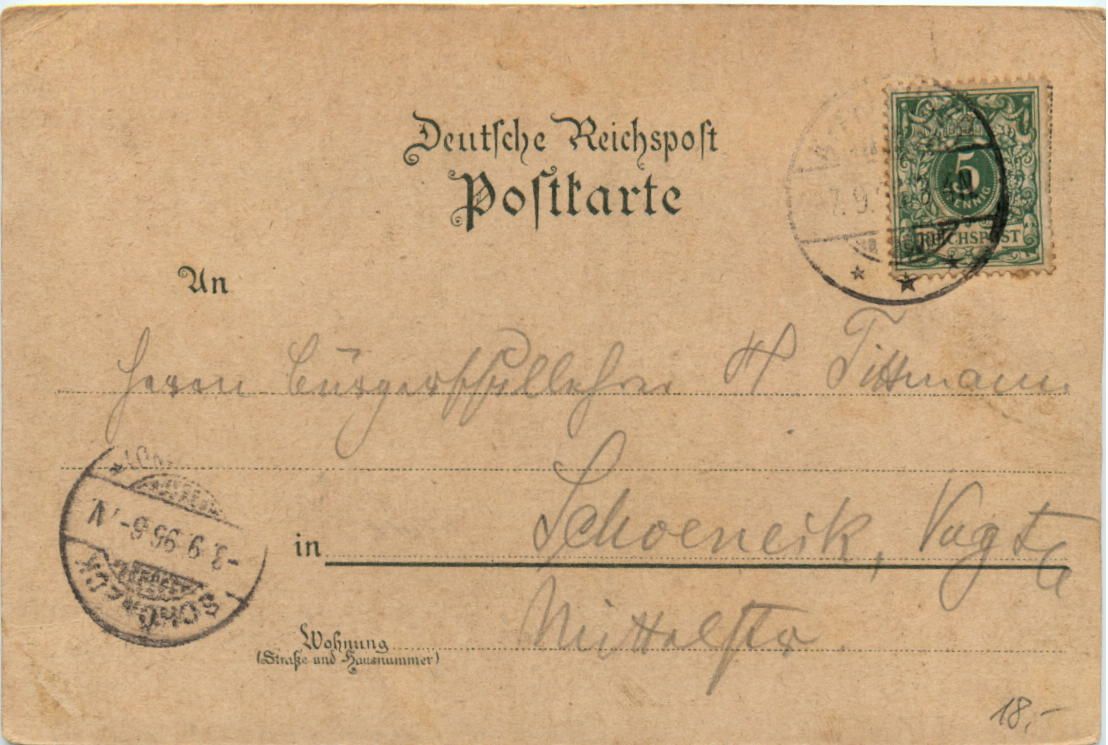 Deutsche Reichspost
Postkarte
5
PFENNIG
REICHSPOST
7.9.
An
Herrn Bürgerschullehrer H Tittmann
in Schoeneck, Vogt
Mittelstr
SCHÖNECK
3.9.96.6-7N
Wohnung
(Straße und Hausnummer)
18,-